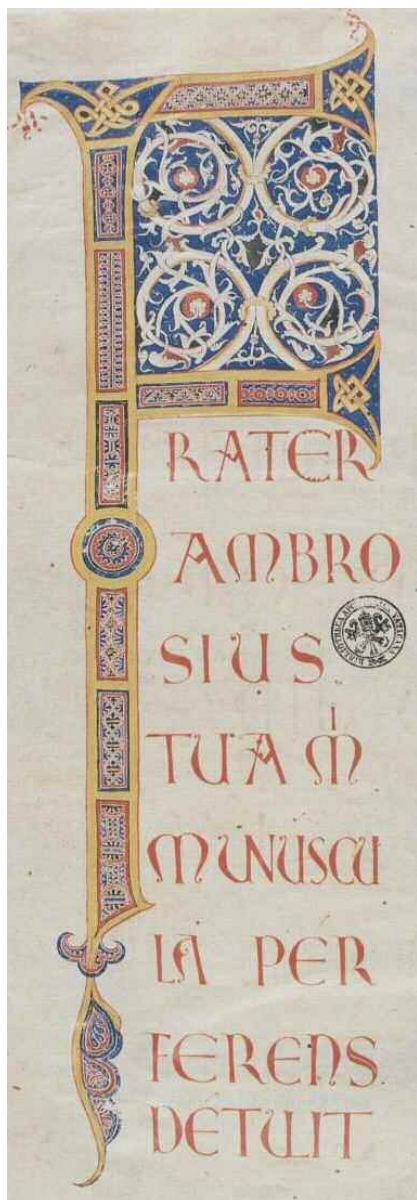 F
RATER
AMBRO
SIUS
TUA M̊
MUNUSCU
LA PER
FERENS
DETULIT